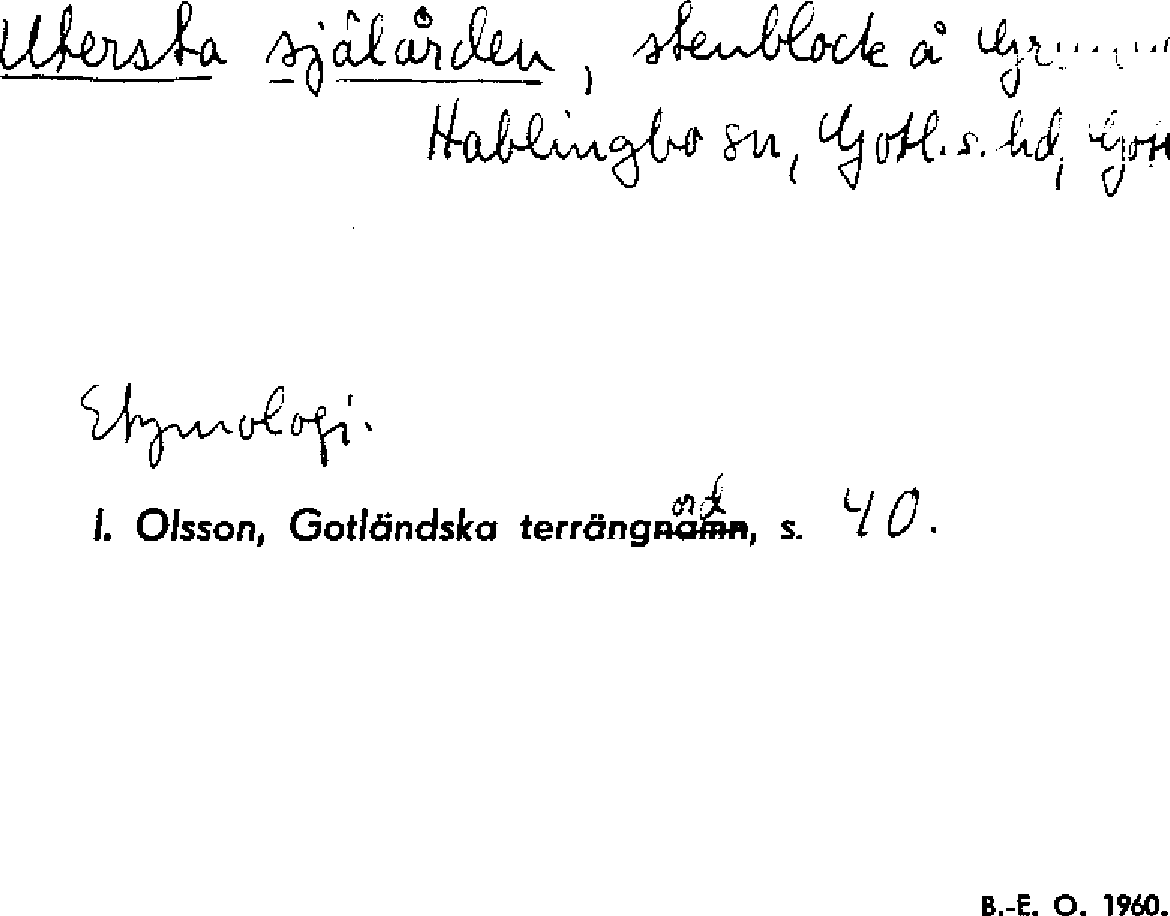 Utersta själården, stenblock å
Hablingbo sn, Gotl. s. hd, Gotl
Etymologi.
I. Olsson, Gotländska terrängord, s. 40.
B.-E. O. 1960.